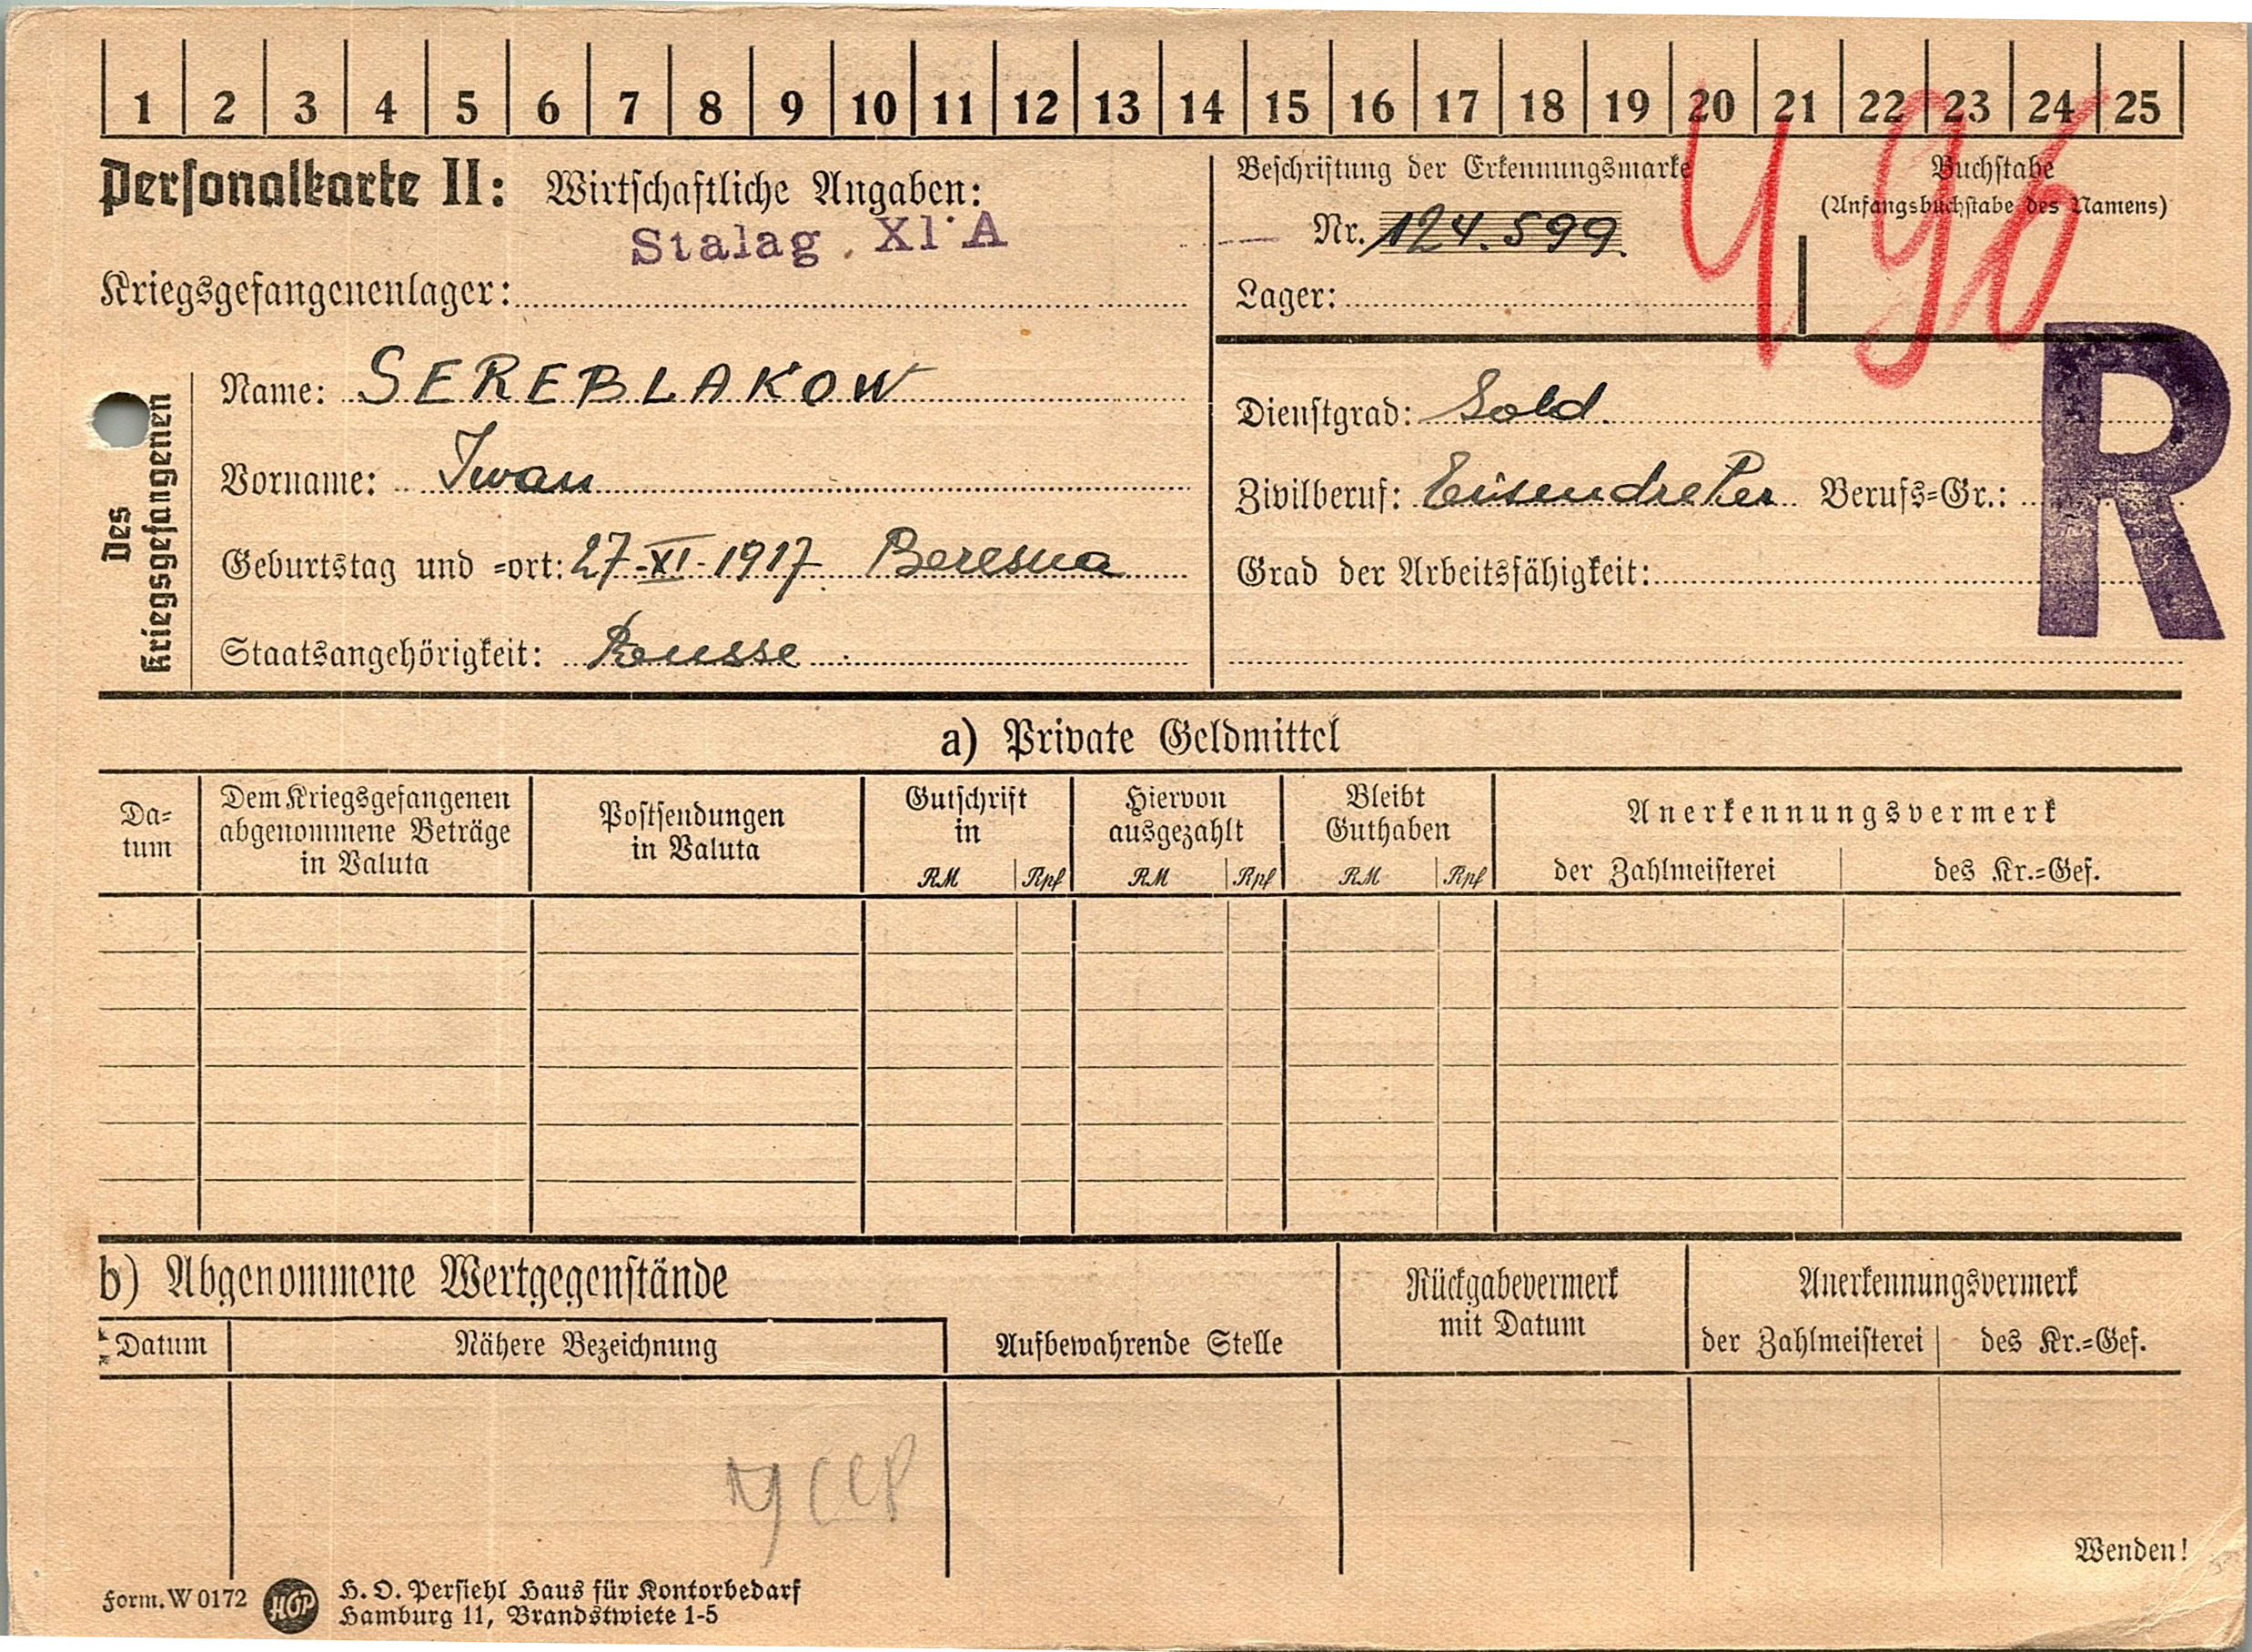 1 2 3 4 5 6 7 8 9 10 11 12 13 14 15 16 17 18 19 20 21 22 23 24 25
496
Personalkarte II: Wirtschaftliche Angaben:
Stalag XI A
Kriegsgefangenenlager:
Beschriftung der Erkennungsmarke
Nr. 124.599.
Lager:
Buchstabe
(Anfangsbuchstabe des Namens)
R
Des
Kriegsgefangenen
Name: SEREBLAKOW
Vorname: Iwan
Geburtstag und =ort: 27-XI-1917. Beresna
Staatsangehörigkeit: Reusse
Dienstgrad: Sold.
Zivilberuf: Eisendreher Berufs=Gr.:
Grad der Arbeitsfähigkeit:
a) Private Geldmittel
Da=
tum
Dem Kriegsgefangenen
abgenommene Beträge
in Valuta
Postsendungen
in Valuta
Gutschrift
in
RM Rpf
Hiervon
ausgezahlt
RM Rpf
Bleibt
Guthaben
RM Rpf
Anerkennungsvermerk
der Zahlmeisterei des Kr.=Gef.
b) Abgenommene Wertgegenstände
Datum Nähere Bezeichnung Aufbewahrende Stelle
Rückgabevermerk
mit Datum
Anerkennungsvermerk
der Zahlmeisterei des Kr.=Gef.
Wenden!
Form. W 0172 HOP H. O. Persiehl Haus für Kontorbedarf
Hamburg 11, Brandstwiete 1-5